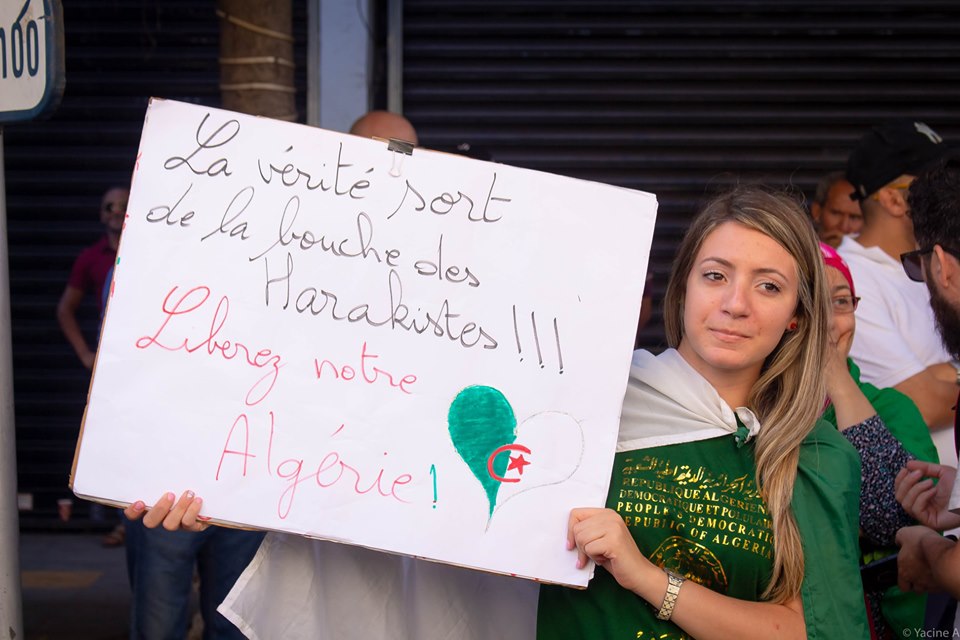 h00
La vérité sort
de la bouche des
Harakistes !!!
Liberez notre
Algérie !
REPUBLIQUE ALGERIENNE
DEMOCRATIQUE ET POPULAIRE
PEOPLE'S DEMOCRATIC
REPUBLIC OF ALGERIA
© Yacine A